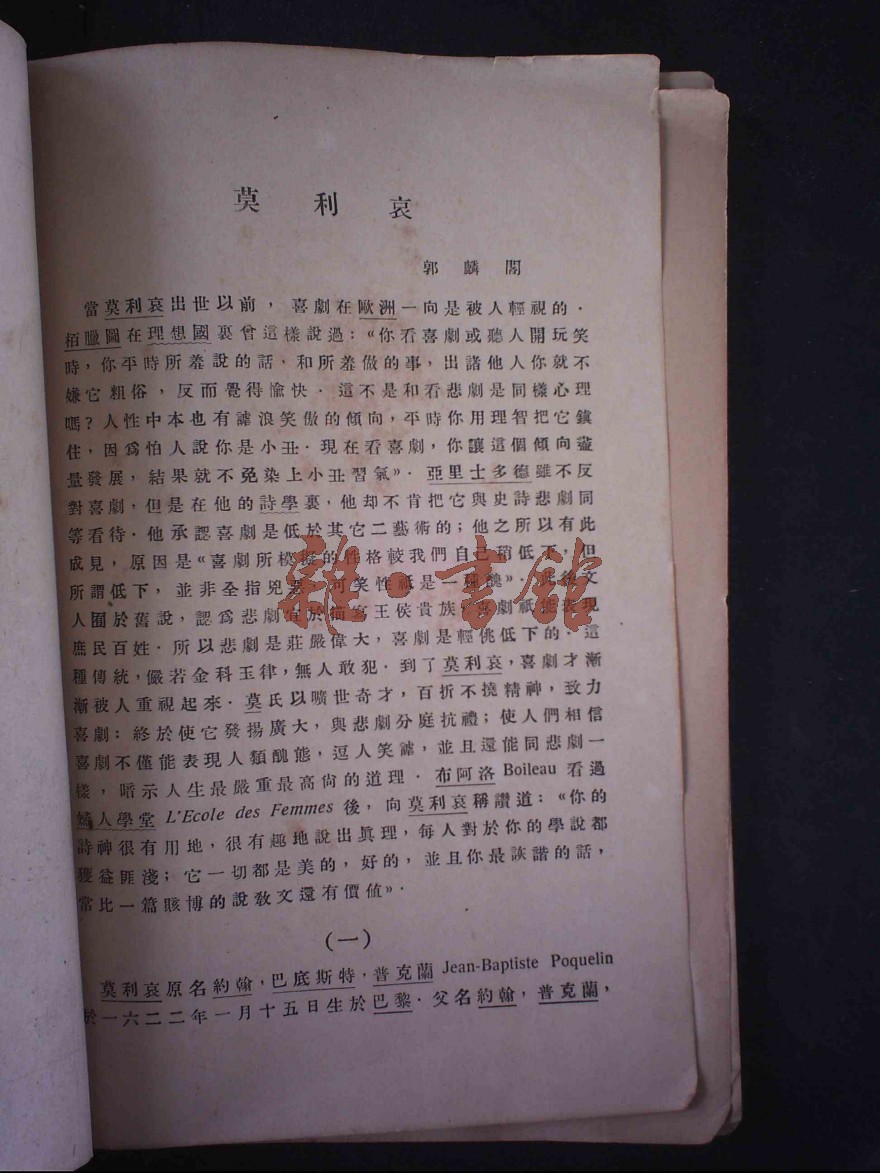 莫利哀
郭麟閣
當莫利哀出世以前，喜劇在歐洲一向是被人輕視的．
栢臘圖在理想國裏曾這樣說過：«你看喜劇或聽人開玩笑
時，你平時所羞說的話，和所羞做的事，出諸他人你就不
嫌它粗俗，反而覺得愉快．這不是和看悲劇是同樣心理
嗎？人性中本也有謔浪笑傲的傾向，平時你用理智把它鎮
住，因爲怕人說你是小丑．現在看喜劇，你讓這個傾向儘
量發展，結果就不免染上小丑習氣»．亞里士多德雖不反
對喜劇，但是在他的詩學裏，他却不肯把它與史詩悲劇同
等看待．他承認喜劇是低於其它二藝術的；他之所以有此
成見，原因是«喜劇所模擬的性格較我們自己稍低下，但
所謂低下，並非全指兇惡，可笑性祇是一種醜»．此後文
人囿於舊說，認爲悲劇宜於描寫王侯貴族，喜劇祇能表現
庶民百姓．所以悲劇是莊嚴偉大，喜劇是輕佻低下的．這
種傳統，儼若金科玉律，無人敢犯．到了莫利哀，喜劇才漸
漸被人重視起來．莫氏以曠世奇才，百折不撓精神，致力
喜劇：終於使它發揚廣大，與悲劇分庭抗禮；使人們相信
喜劇不僅能表現人類醜態，逗人笑謔，並且還能同悲劇一
樣，暗示人生最嚴重最高尙的道理．布阿洛 Boileau 看過
婦人學堂 L'Ecole des Femmes 後，向莫利哀稱讚道：«你的
詩神很有用地，很有趣地說出眞理，每人對於你的學說都
獲益匪淺；它一切都是美的，好的，並且你最詼諧的話，
當比一篇賅博的說敎文還有價值»．
(一)
莫利哀原名約翰，巴底斯特，普克蘭 Jean-Baptiste Poquelin
於一六二二年一月十五日生於巴黎．父名約翰，普克蘭，
雜·書館